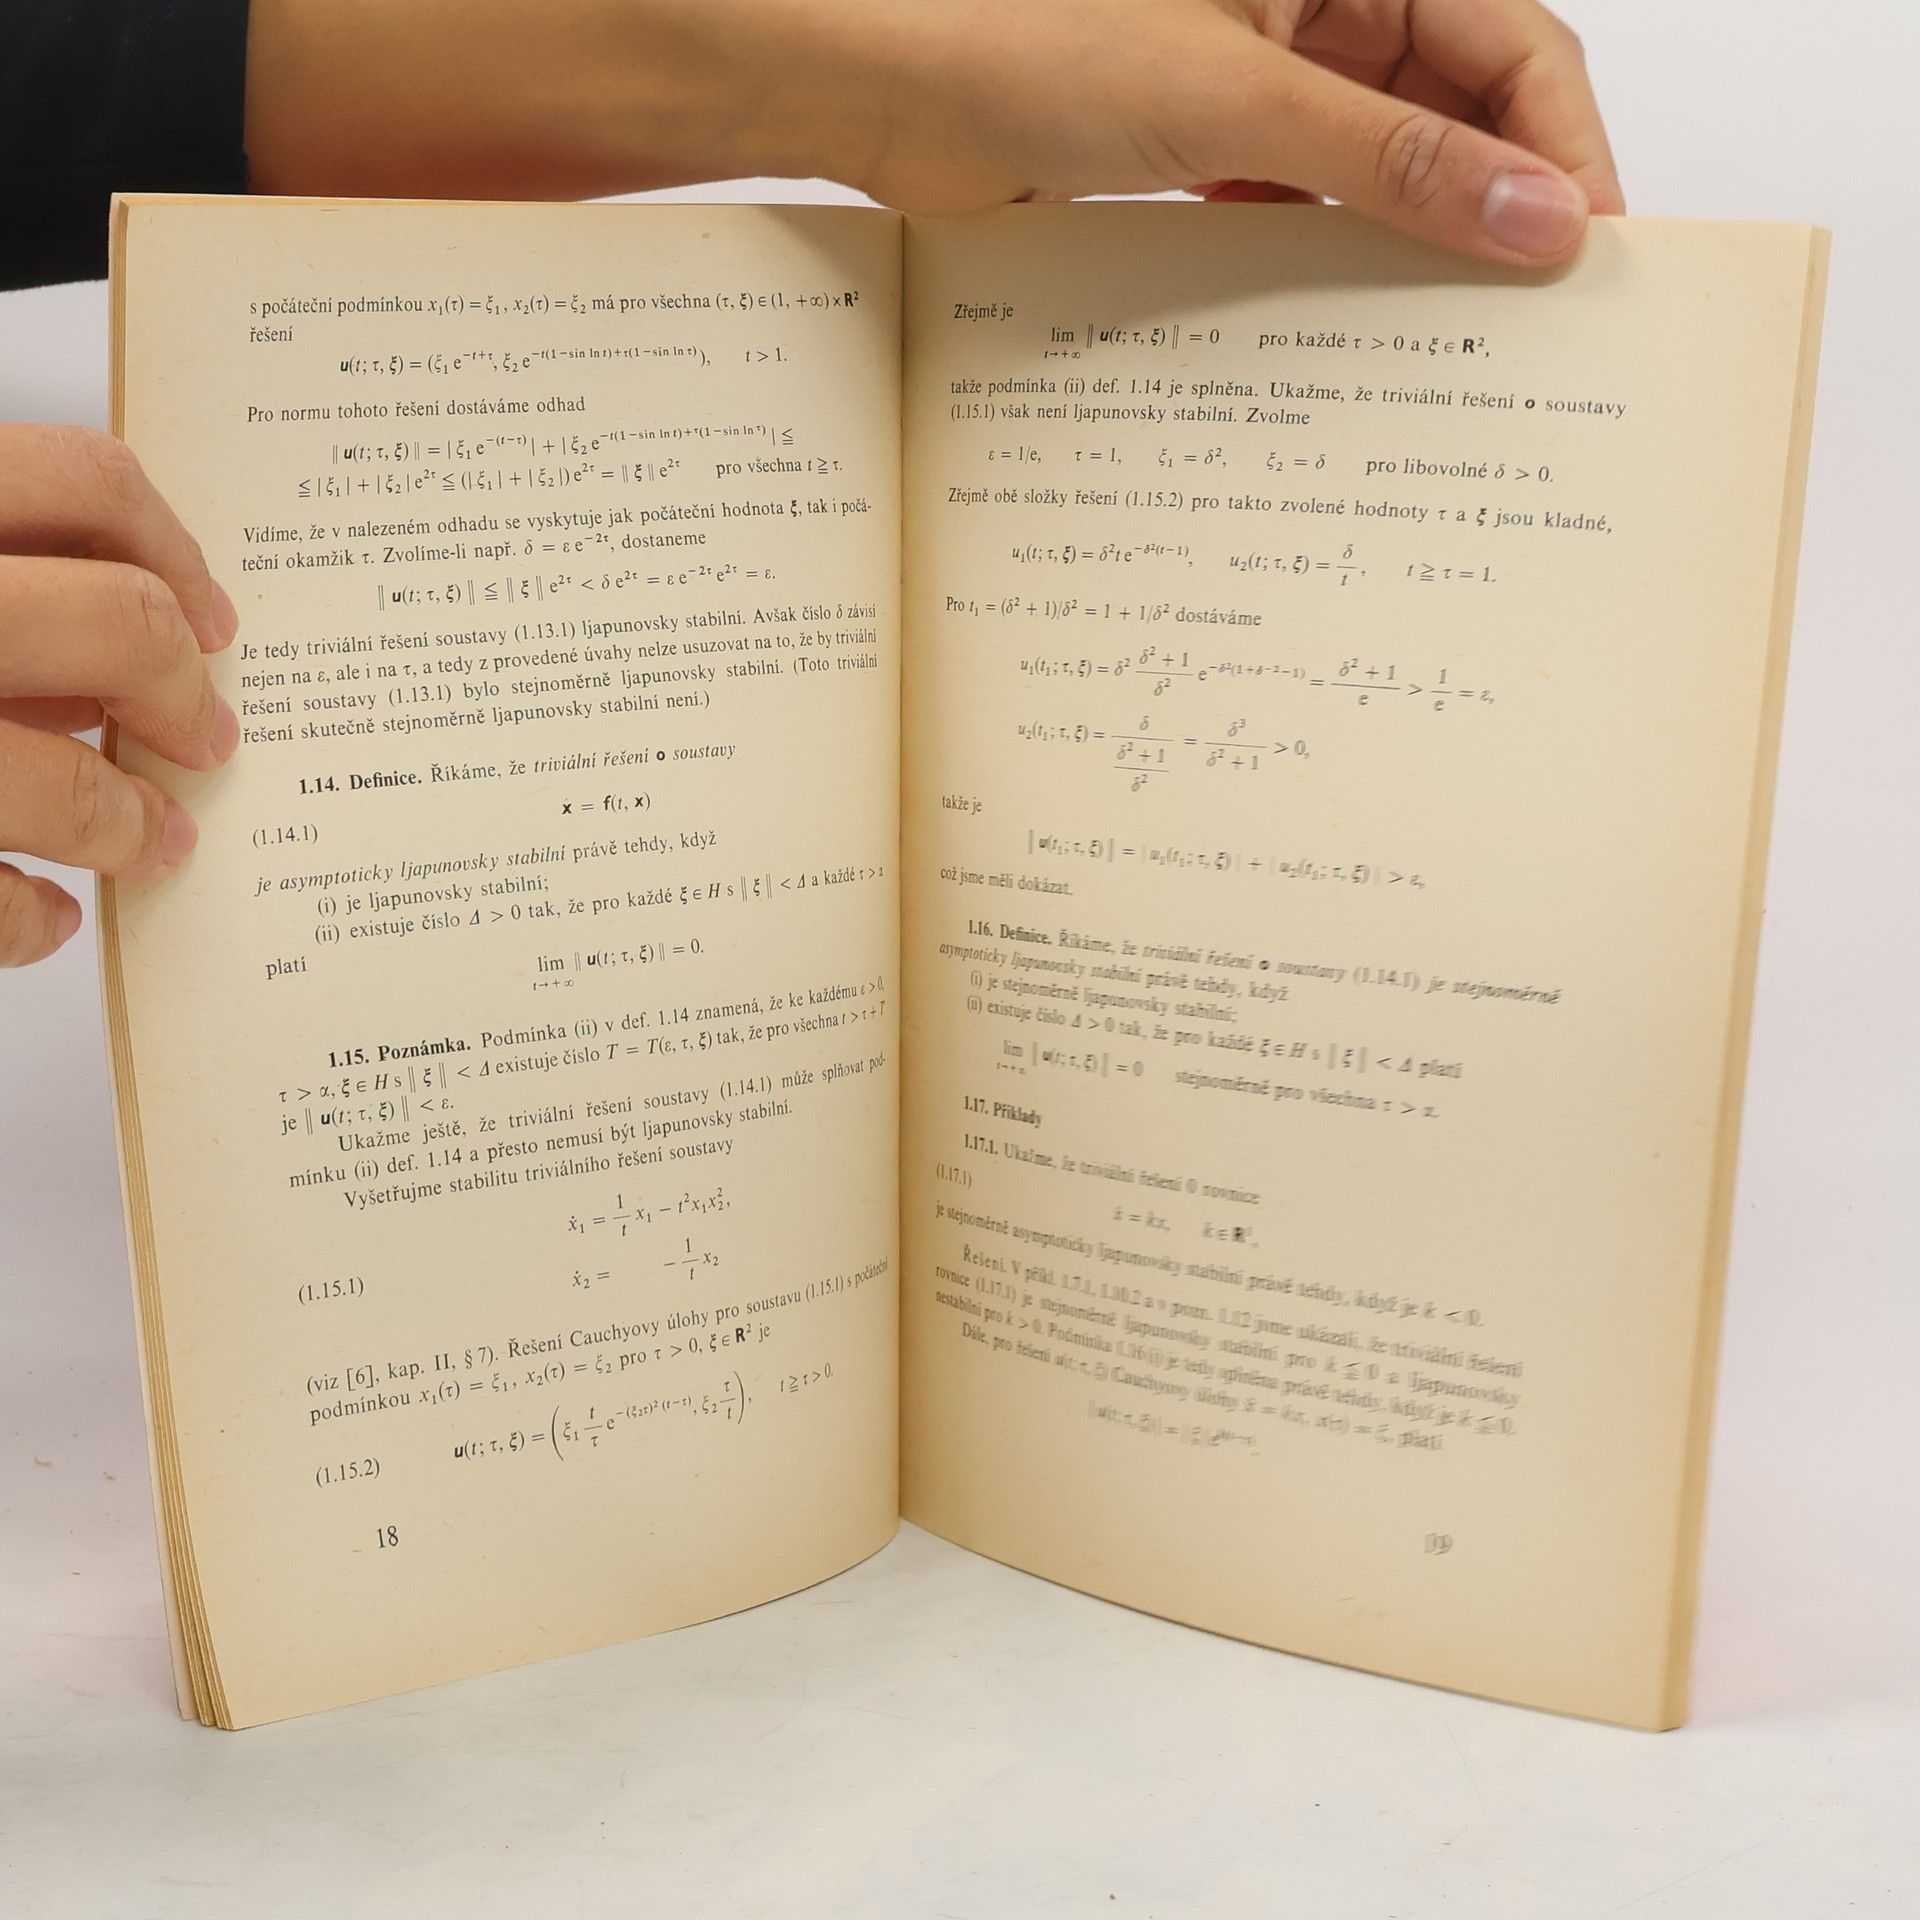 s počáteční podmínkou x₁(τ) = ξ₁, x₂(τ) = ξ₂ má pro všechna (τ, ξ) ∈ (1, +∞) × R²
řešení
u(t; τ, ξ) = (ξ₁ e^{−t+τ}, ξ₂ e^{−t(1−sin ln t)+τ(1−sin ln τ)}), t > 1.
Pro normu tohoto řešení dostáváme odhad
‖ u(t; τ, ξ) ‖ = | ξ₁ e^{−(t−τ)} | + | ξ₂ e^{−t(1−sin ln t)+τ(1−sin ln τ)} | ≦
≦ | ξ₁ | + | ξ₂ | e^{2τ} ≦ (| ξ₁ | + | ξ₂ |) e^{2τ} = ‖ ξ ‖ e^{2τ} pro všechna t ≧ τ.
Vidíme, že v nalezeném odhadu se vyskytuje jak počáteční hodnota ξ, tak i počá-
teční okamžik τ. Zvolíme-li např. δ = ε e^{−2τ}, dostaneme
‖ u(t; τ, ξ) ‖ ≦ ‖ ξ ‖ e^{2τ} < δ e^{2τ} = ε e^{−2τ} e^{2τ} = ε.
Je tedy triviální řešení soustavy (1.13.1) ljapunovsky stabilní. Avšak číslo δ závisí
nejen na ε, ale i na τ, a tedy z provedené úvahy nelze usuzovat na to, že by triviální
řešení soustavy (1.13.1) bylo stejnoměrně ljapunovsky stabilní. (Toto triviální
řešení skutečně stejnoměrně ljapunovsky stabilní není.)
1.14. Definice. Říkáme, že triviální řešení o soustavy
(1.14.1) ẋ = f(t, x)
je asymptoticky ljapunovsky stabilní právě tehdy, když
(i) je ljapunovsky stabilní;
(ii) existuje číslo Δ > 0 tak, že pro každé ξ ∈ H s ‖ ξ ‖ < Δ a každé τ > α
platí
lim_{t→+∞} ‖ u(t; τ, ξ) ‖ = 0.
1.15. Poznámka. Podmínka (ii) v def. 1.14 znamená, že ke každému ε > 0,
τ > α, ξ ∈ H s ‖ ξ ‖ < Δ existuje číslo T = T(ε, τ, ξ) tak, že pro všechna t > τ + T
je ‖ u(t; τ, ξ) ‖ < ε.
Ukažme ještě, že triviální řešení soustavy (1.14.1) může splňovat pod-
mínku (ii) def. 1.14 a přesto nemusí být ljapunovsky stabilní.
Vyšetřujme stabilitu triviálního řešení soustavy
ẋ₁ = 1/t x₁ − t²x₁x₂²,
(1.15.1) ẋ₂ = − 1/t x₂
(viz [6], kap. II, § 7). Řešení Cauchyovy úlohy pro soustavu (1.15.1) s počáteční
podmínkou x₁(τ) = ξ₁, x₂(τ) = ξ₂ pro τ > 0, ξ ∈ R² je
(1.15.2) u(t; τ, ξ) = (ξ₁ t/τ e^{−(ξ₂τ)² (t−τ)}, ξ₂ τ/t), t ≧ τ > 0.
18
Zřejmě je
lim_{t→+∞} ‖ u(t; τ, ξ) ‖ = 0 pro každé τ > 0 a ξ ∈ R²,
takže podmínka (ii) def. 1.14 je splněna. Ukažme, že triviální řešení o soustavy
(1.15.1) však není ljapunovsky stabilní. Zvolme
ε = 1/e, τ = 1, ξ₁ = δ², ξ₂ = δ pro libovolné δ > 0.
Zřejmě obě složky řešení (1.15.2) pro takto zvolené hodnoty τ a ξ jsou kladné,
u₁(t; τ, ξ) = δ²t e^{−δ²(t−1)}, u₂(t; τ, ξ) = δ/t, t ≧ τ = 1.
Pro t₁ = (δ² + 1)/δ² = 1 + 1/δ² dostáváme
u₁(t₁; τ, ξ) = δ² (δ² + 1)/δ² e^{−δ²(1+δ^{−2}−1)} = (δ² + 1)/e > 1/e = ε,
u₂(t₁; τ, ξ) = δ/((δ² + 1)/δ²) = δ³/(δ² + 1) > 0,
takže je
‖ u(t₁; τ, ξ) ‖ = | u₁(t₁; τ, ξ) | + | u₂(t₁; τ, ξ) | > ε,
což jsme měli dokázat.
1.16. Definice. Říkáme, že triviální řešení o soustavy (1.14.1) je stejnoměrně
asymptoticky ljapunovsky stabilní právě tehdy, když
(i) je stejnoměrně ljapunovsky stabilní;
(ii) existuje číslo Δ > 0 tak, že pro každé ξ ∈ H s ‖ ξ ‖ < Δ platí
lim_{t→+∞} ‖ u(t; τ, ξ) ‖ = 0 stejnoměrně pro všechna τ > α.
1.17. Příklady
1.17.1. Ukažme, že triviální řešení 0 rovnice
(1.17.1) ẋ = kx, k ∈ R¹,
je stejnoměrně asymptoticky ljapunovsky stabilní právě tehdy, když je k < 0.
Řešení. V příkl. 1.7.1, 1.10.2 a v pozn. 1.12 jsme ukázali, že triviální řešení
rovnice (1.17.1) je stejnoměrně ljapunovsky stabilní pro k ≦ 0 a ljapunovsky
nestabilní pro k > 0. Podmínka 1.16 (i) je tedy splněna právě tehdy, když je k ≦ 0.
Dále, pro řešení u(t; τ, ξ) Cauchyovy úlohy ẋ = kx, x(τ) = ξ, platí
19